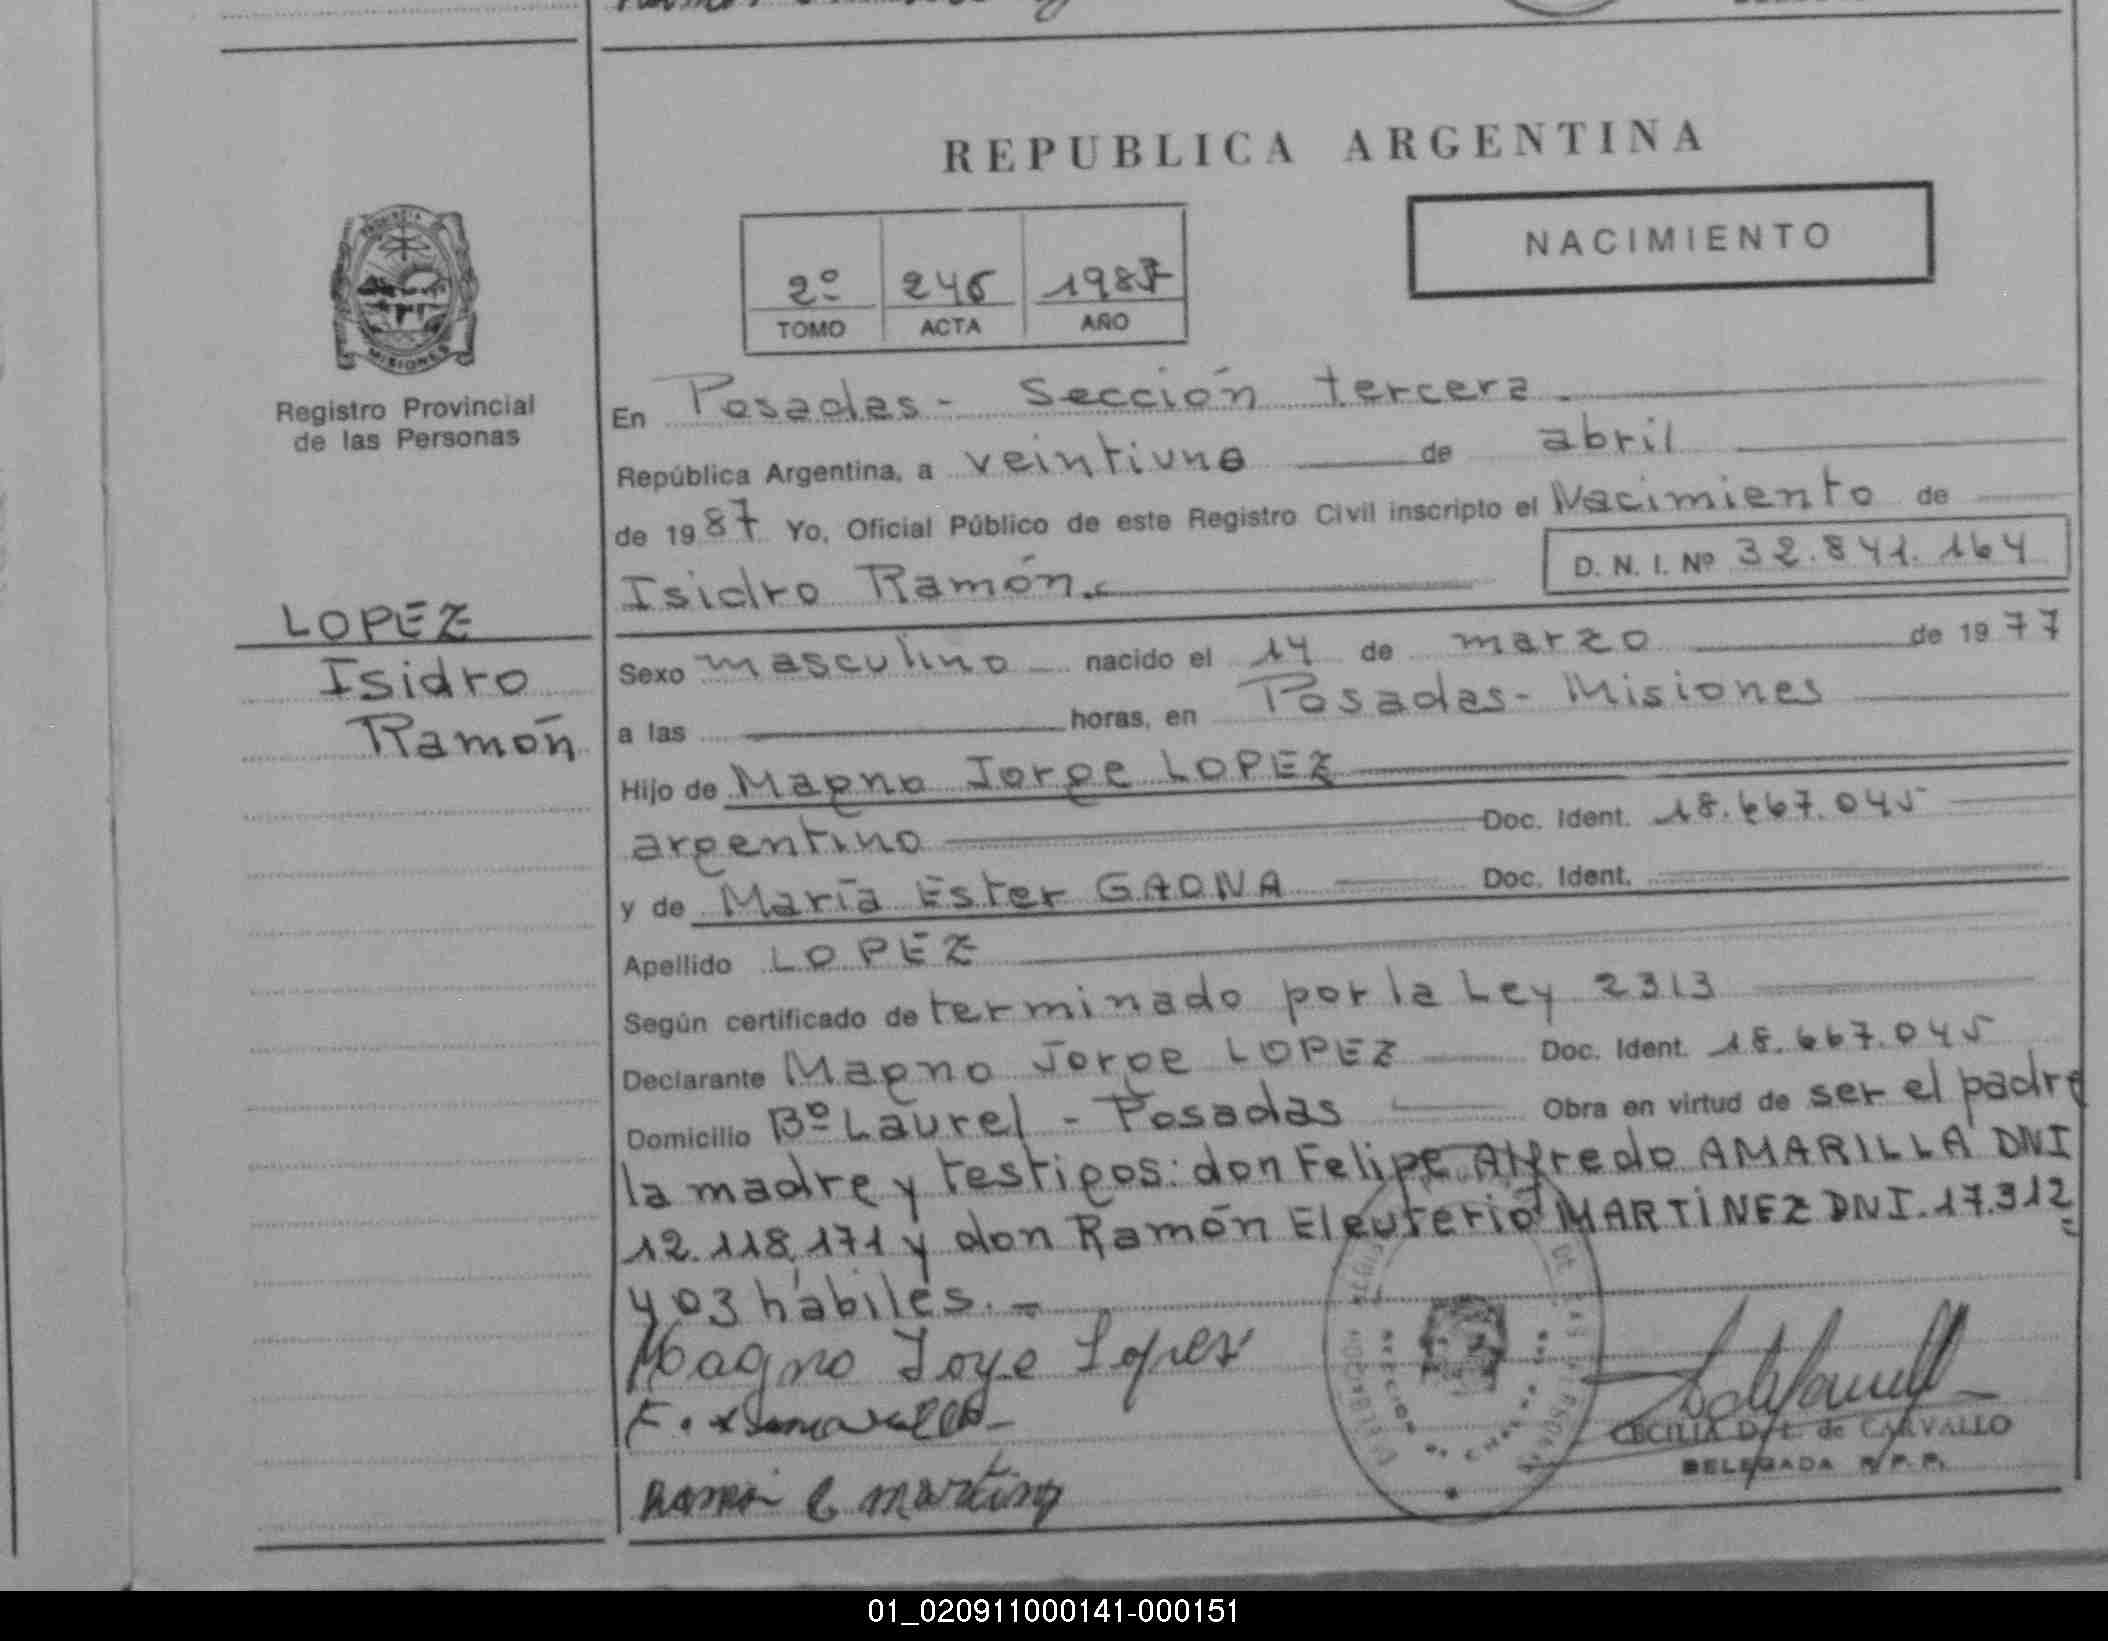 REPUBLICA ARGENTINA
NACIMIENTO
2º 246 1987
TOMO ACTA AÑO
MISIONES
Registro Provincial
de las Personas
LOPEZ
Isidro
Ramón
En Posadas - Sección tercera.
República Argentina, a veintiuno de abril
de 1987 Yo, Oficial Público de este Registro Civil inscripto el Nacimiento de
Isidro Ramón. D. N. I. Nº 32.841.164
Sexo masculino nacido el 14 de marzo de 1977
a las horas, en Posadas - Misiones
Hijo de Magno Jorge LOPEZ
argentino Doc. Ident. 18.667.045
y de María Ester GAONA Doc. Ident.
Apellido LOPEZ
Según certificado de terminado por la Ley 2313
Declarante Magno Jorge LOPEZ Doc. Ident. 18.667.045
Domicilio Bº Laurel - Posadas Obra en virtud de ser el padre
la madre y testigos: don Felipe Alfredo AMARILLA DNI
12.118.171 y don Ramón Eleuterio MARTINEZ DNI. 17.312=
403 hábiles. -
Magno Joye Lopez
Ramon E martinez
CECILIA D. L. de CARVALLO
DELEGADA R. P. P.
01_020911000141-000151